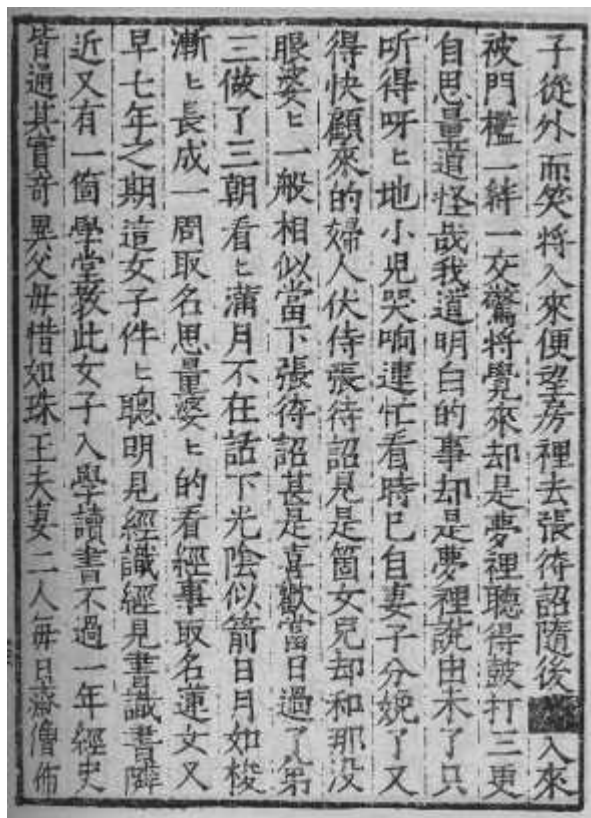 子從外而笑將入來便望房裡去張待詔隨後入來
被門檻一絆一交驚將覺來却是夢裡聽得鼓打三更
自思量道怪哉我道明白的事却是夢裡說由未了只
听得呀〻地小児哭响連忙看時已自妻子分娩了又
得快顧來的婦人伏侍張待詔見是箇女兒却和那没
眼婆〻一般相似當下張待詔甚是喜歡當日過了弟
三做了三朝看〻滿月不在話下光陰似箭日月如梭
漸〻長成一周取名思量婆〻的看經事取名蓮女又
早七年之期這女子件〻聰明見經識經見書識書隣
近又有一箇學堂教此女子入學讀書不過一年經史
皆通其實奇異父母惜如珠玉夫妻二人每日齋僧佈